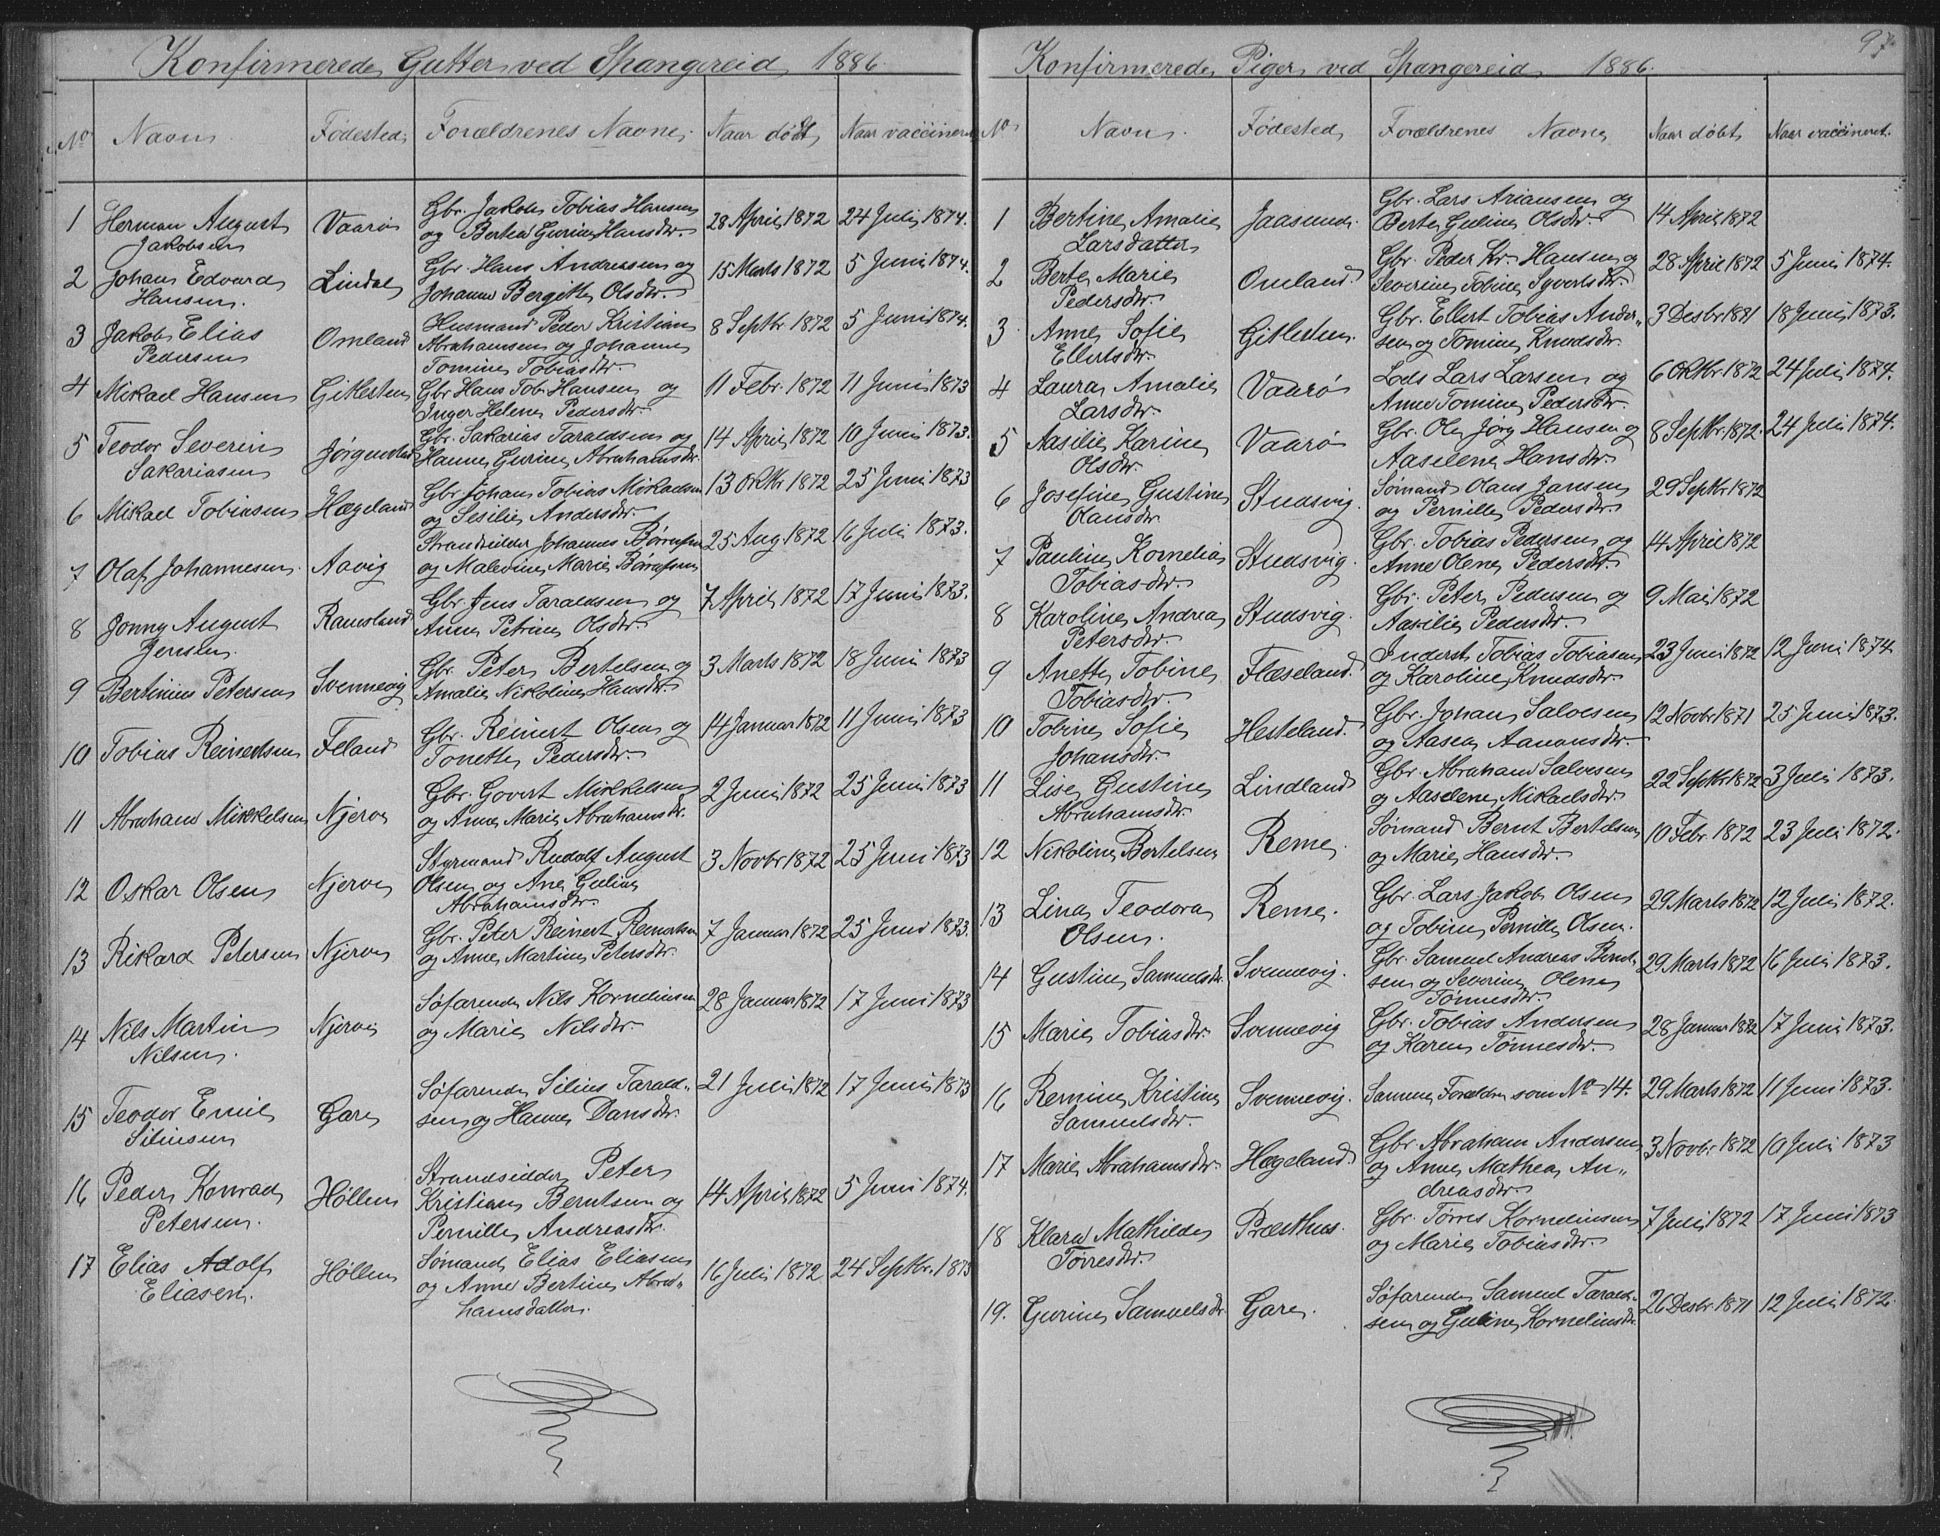 Konfirmerede Gutter ved Spangereid 1886.
No Navn Fødested. Forældrenes Navne. Naar døbt Naar vaccineret
1 Herman August Jakobsen Vaarø Gbr. Jakob Tobias Hansen og Berthe Gurine Hansdtr. 28 April 1872 24 Juli 1874.
2 Johan Edvard Hansen. Lindal Gbr. Hans Andreasen og Johanne Bergitte Olsdtr. 15 Marts 1872 5 Juni 1874.
3 Jakob Elias Pedersen Omland Husmand Peder Kristian Abrahamsen og Johanne Tomine Tobiasdtr. 8 Septbr 1872 5 Juni 1874.
4 Mikael Hansen Gitlesten Gbr Hans Tob. Hansen og Inger Helene Pedersdtr. 11 Febr. 1872 11 Juni 1873
5 Teodor Severin Sakariasen Gbr. Sakarias Taraldsen og Hanne Gurine Abrahamsdtr. 14 April 1872 10 Juni 1873.
6 Mikael Tobiasen Hægeland Gbr Johan Tobias Mikaelsen og Sesilie Andersdtr. 13 Oktbr 1872 25 Juni 1873
7 Olaf Johannesen. Aavig Strandsidder Johannes og Malvine Marie 25 Aug. 1872 16 Juli 1873.
8 Jonny August Jensen. Ramsland Gbr. Jens Taraldsen og Anne Petrine Olsdtr. 7 April 1872 17 Juni 1873.
9 Bertinius Petersen Svennevig Gbr. Peter Bertelsen og Amalie Nikoline Hansdtr. 3 Marts 1872 18 Juni 1873
10 Tobias Reinertsen Feland Gbr. Reinert Olsen og Tonette Pedersdtr. 14 Januar 1872 11 Juni 1873
11 Abraham Mikkelsen Njerve Gbr. Govert Mikkelsen og Anne Marie Abrahamsdtr. 2 Juni 1872 25 Juni 1873
12 Oskar Olsen Njerve Styrmand Rudolf August Olsen og Ane Guline Abrahamsdtr. 3 Novbr 1872 25 Juni 1873
13 Rikard Petersen Njerve Gbr. Peter Reinert Reinertsen og Anne Martine Petersdtr. 7 Januar 1872 25 Juni 1873.
14 Nils Martin Nilsen. Njerve Søfarende Nils Korneliusen og Marie Nilsdtr. 28 Januar 1872 17 Juni 1873
15 Teodor Emil Siliusen Gare Søfarende Silius Tarald- sen og Hanne Dansdtr. 21 Juli 1872 17 Juni 1873
16 Peder Konrad Petersen. Høllen Strandsidder Peter Kristian Berntsen og Pernille Andreasdtr. 14 April 1872 5 Juni 1874.
17 Elias Adolf Eliasen. Høllen Sømand Elias Eliasen og Anne Bertine Abra- hamsdatter. 16 Juli 1872 24 Septbr. 1873
97
Konfirmerede Piger ved Spangereid 1886.
No Navn. Fødested Forældrenes Navne Naar døbt Naar vaccineret.
1 Bertine Amalie Larsdatter Jaasund. Gbr. Lars Ariansen og Berte Guline Olsdtr. 14 April 1872
2 Berte Marie Pedersdtr. Omland. Gbr. Peder Kr. Hansen og Severine Tobine Syvertsdtr. 28 April 1872 5 Juni 1874.
3 Anne Sofie Ellertsdtr. Gitlesten. Gbr. Ellert Tobias Ander- sen og Tomine Knudsdtr. 3 Desbr 1881 18 Juni 1873.
4 Laura Amalie Larsdtr. Vaarø Lods Lars Larsen og Anne Tomine Pedersdtr. 6 Oktbr 1872 24 Juli 1874.
5 Aasilie Karine Olsdtr. Vaarø Gbr. Ole Jørg Hansen og Aaselene Hansdtr. 8 Septbr. 1872. 24 Juli 1874.
6 Josefine Gustine Olausdtr. Studsvig. Sømand Olaus Jansen og Pernille Pedersdtr. 29 Septbr 1872
7 Pauline Kornelia Tobiasdtr. Studsvig. Gbr. Tobias Pedersen og Anne Olene Pedersdtr. 14 April 1872
8 Karoline Andrea Petersdtr. Studsvig. Gbr. Peter Pedersen og Aasilie Pedersdtr. 9 Mai 1872
9 Anette Tobine Tobiasdtr. Flæseland. Inderst Tobias Tobiasen og Karoline Knudsdtr. 23 Juni 1872 12 Juni 1874
10 Tobine Sofie Johansdtr. Hesteland. Gbr. Johan Salvesen og Aasea Aanonsdtr. 12 Novbr 1871 25 Juni 1873.
11 Lise Gustine Abrahamsdtr. Lindland Gbr. Abraham Salvesen og Aaselene Mikaelsdtr. 22 Septbr 1872 3 Juli 1873.
12 Nikoline Bertelsen Reme. Sømand Bernt Bertelsen og Marie Hansdtr. 10 Febr. 1872 23 Juli 1872.
13 Lina Teodora Olsen. Reme. Gbr. Lars Jakob Olsen og Tobine Pernille Olsen. 29 Marts 1872 12 Juli 1872.
14 Gustine Samuelsdtr. Svennevig. Gbr. Samuel Andreas Bernt- sen og Severine Olene Tønnesdtr. 29 Marts 1872 16 Juli 1873.
15 Marie Tobiasdtr. Svennevig Gbr. Tobias Andersen og Karen Tønnesdtr. 28 Januar 1872 17 Juni 1873.
16 Remine Kristine Samuelsdtr. Svennevig. Samme Forældre som No 14. 29 Marts 1872 11 Juni 1873.
17 Marie Abrahamsdtr. Hægeland. Gbr. Abraham Andersen og Anne Mathea An- dreasdtr. 3 Novbr 1872 10 Juli 1873
18 Klara Mathilde Tørresdtr. Præsthus. Gbr. Tørres Korneliusen og Marie Tobiasdtr. 7 Juli 1872 17 Juni 1873
19. Gurine Samuelsdtr. Gare. Søfarende Samuel Tarald- sen og Guline Korneliusdtr. 26 Desbr. 1871 12 Juli 1872.